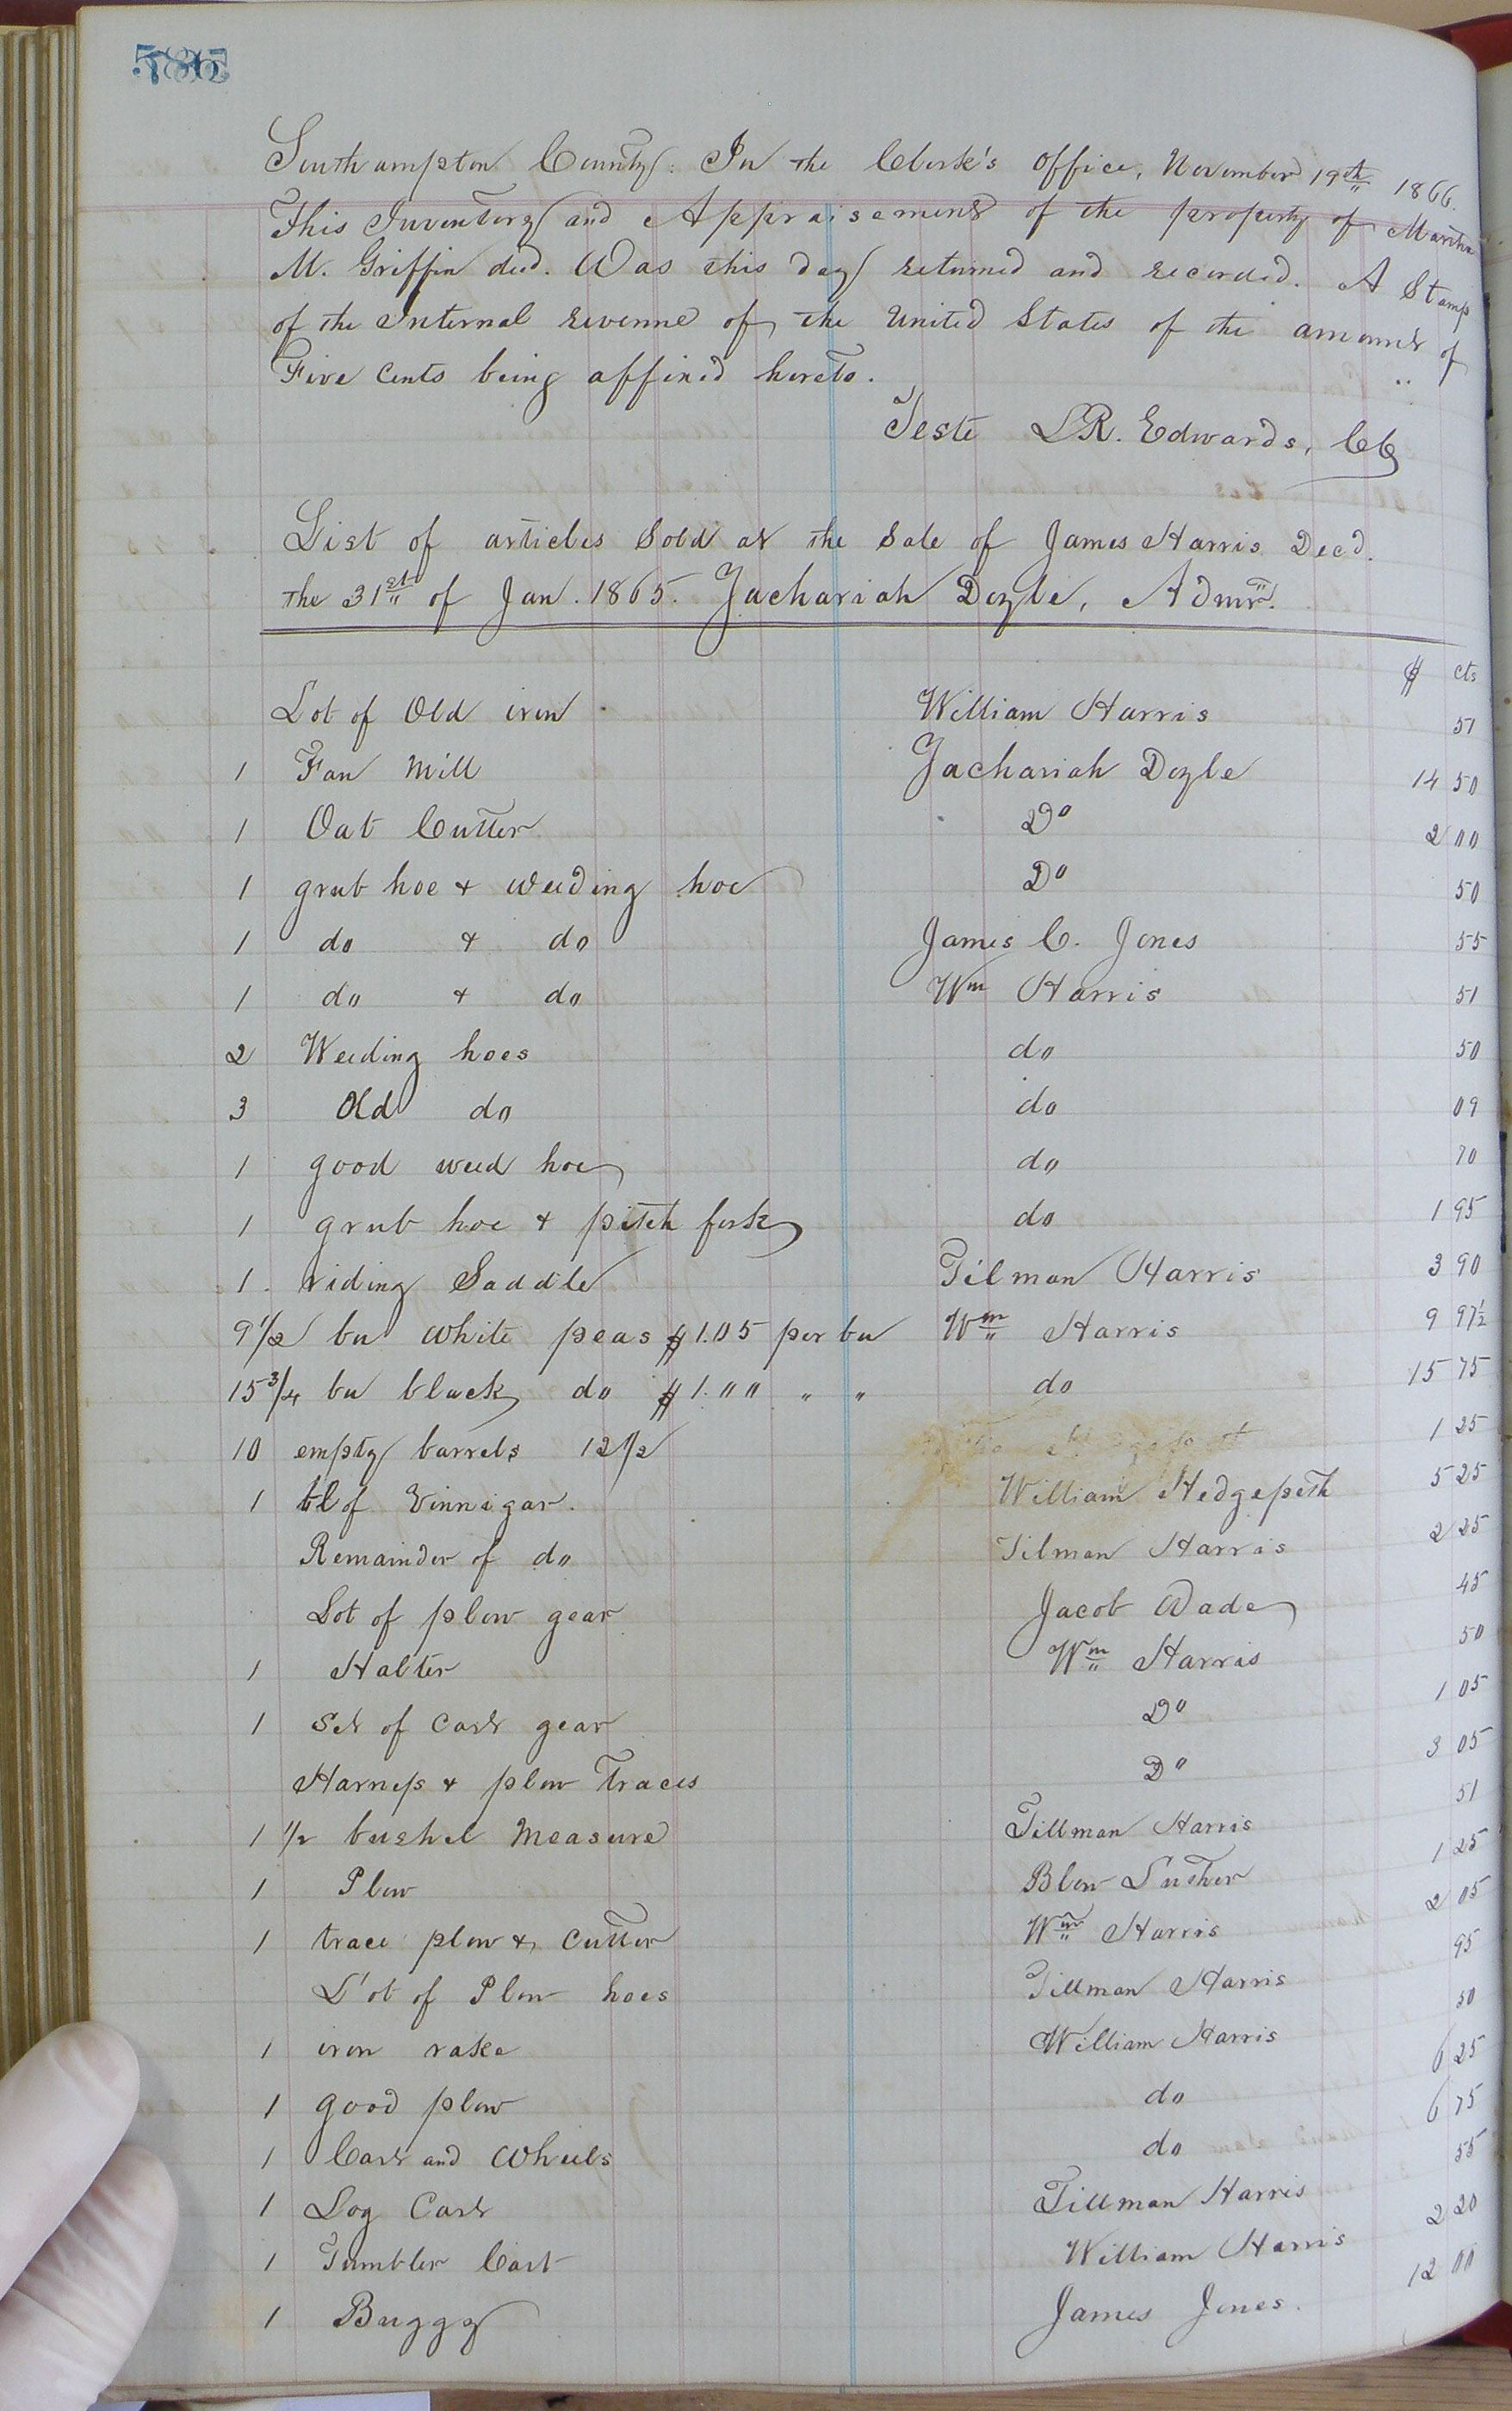 Southampton County. In the Clerk's Office, November 19th 1866.
This Inventory and Appraisement of the property of Martha
M. Griffin decd. Was this day returned and recorded. A Stamp
of the Internal revenue of the United States of the amount of
Five Cents being affixed hereto.
Teste LR. Edwards, CC
List of articles Sold at the Sale of James Harris Decd.
the 31st of Jan. 1865. Zachariah Doyle, Admr.
$ cts
Lot of Old iron William Harris 51
1 Fan Mill Zachariah Doyle 14 50
1 Oat Cutter Do 2 00
1 grub hoe & weeding hoe Do 50
1 do & do James C. Jones 55
1 do & do Wm Harris 51
2 Weeding hoes do 50
3 Old do do 09
1 good weed hoe do 70
1 grub hoe & pitch fork do 1 95
1 riding Saddle Tilman Harris 3 90
9 1/2 bu white peas $1.05 per bu Wm Harris 9 97 1/2
15 3/4 bu black do $1.00 " " do 15 75
10 empty barrels 12 1/2 1 25
1 bl of Vinnigar. William Hedgepeth 5 25
Remainder of do Tilman Harris 2 25
Lot of plow gear Jacob Wade 45
1 Halter Wm Harris 50
1 Set of Cart gear Do 1 05
Harness & plow Traces Do 3 05
1 1/2 bushel Measure Tillman Harris 51
1 Plow Blow Luther 1 25
1 trace plow & Cutter Wm Harris 2 05
Lot of Plow hoes Tillman Harris 95
1 iron rake William Harris 50
1 good plow do 6 25
1 Cart and Wheels do 6 75
1 Log Cart Tillman Harris 55
1 Tumbler Cart William Harris 2 20
1 Buggy James Jones. 12 00